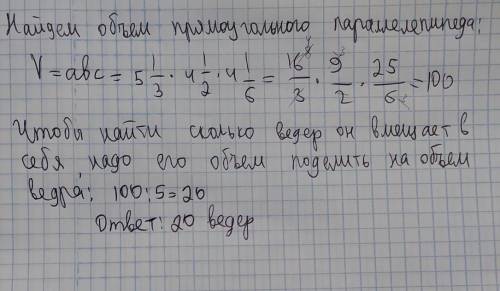 Найдем объем прямоугольного параллелепипеда:
V = abc = 5 1/3 · 4 1/2 · 4 1/6 = 16/3 · 9/2 · 25/6 = 100
Чтобы найти сколько ведер он вмещает в
себя, надо его объем поделить на объем
ведра: 100:5=20
Ответ: 20 ведер